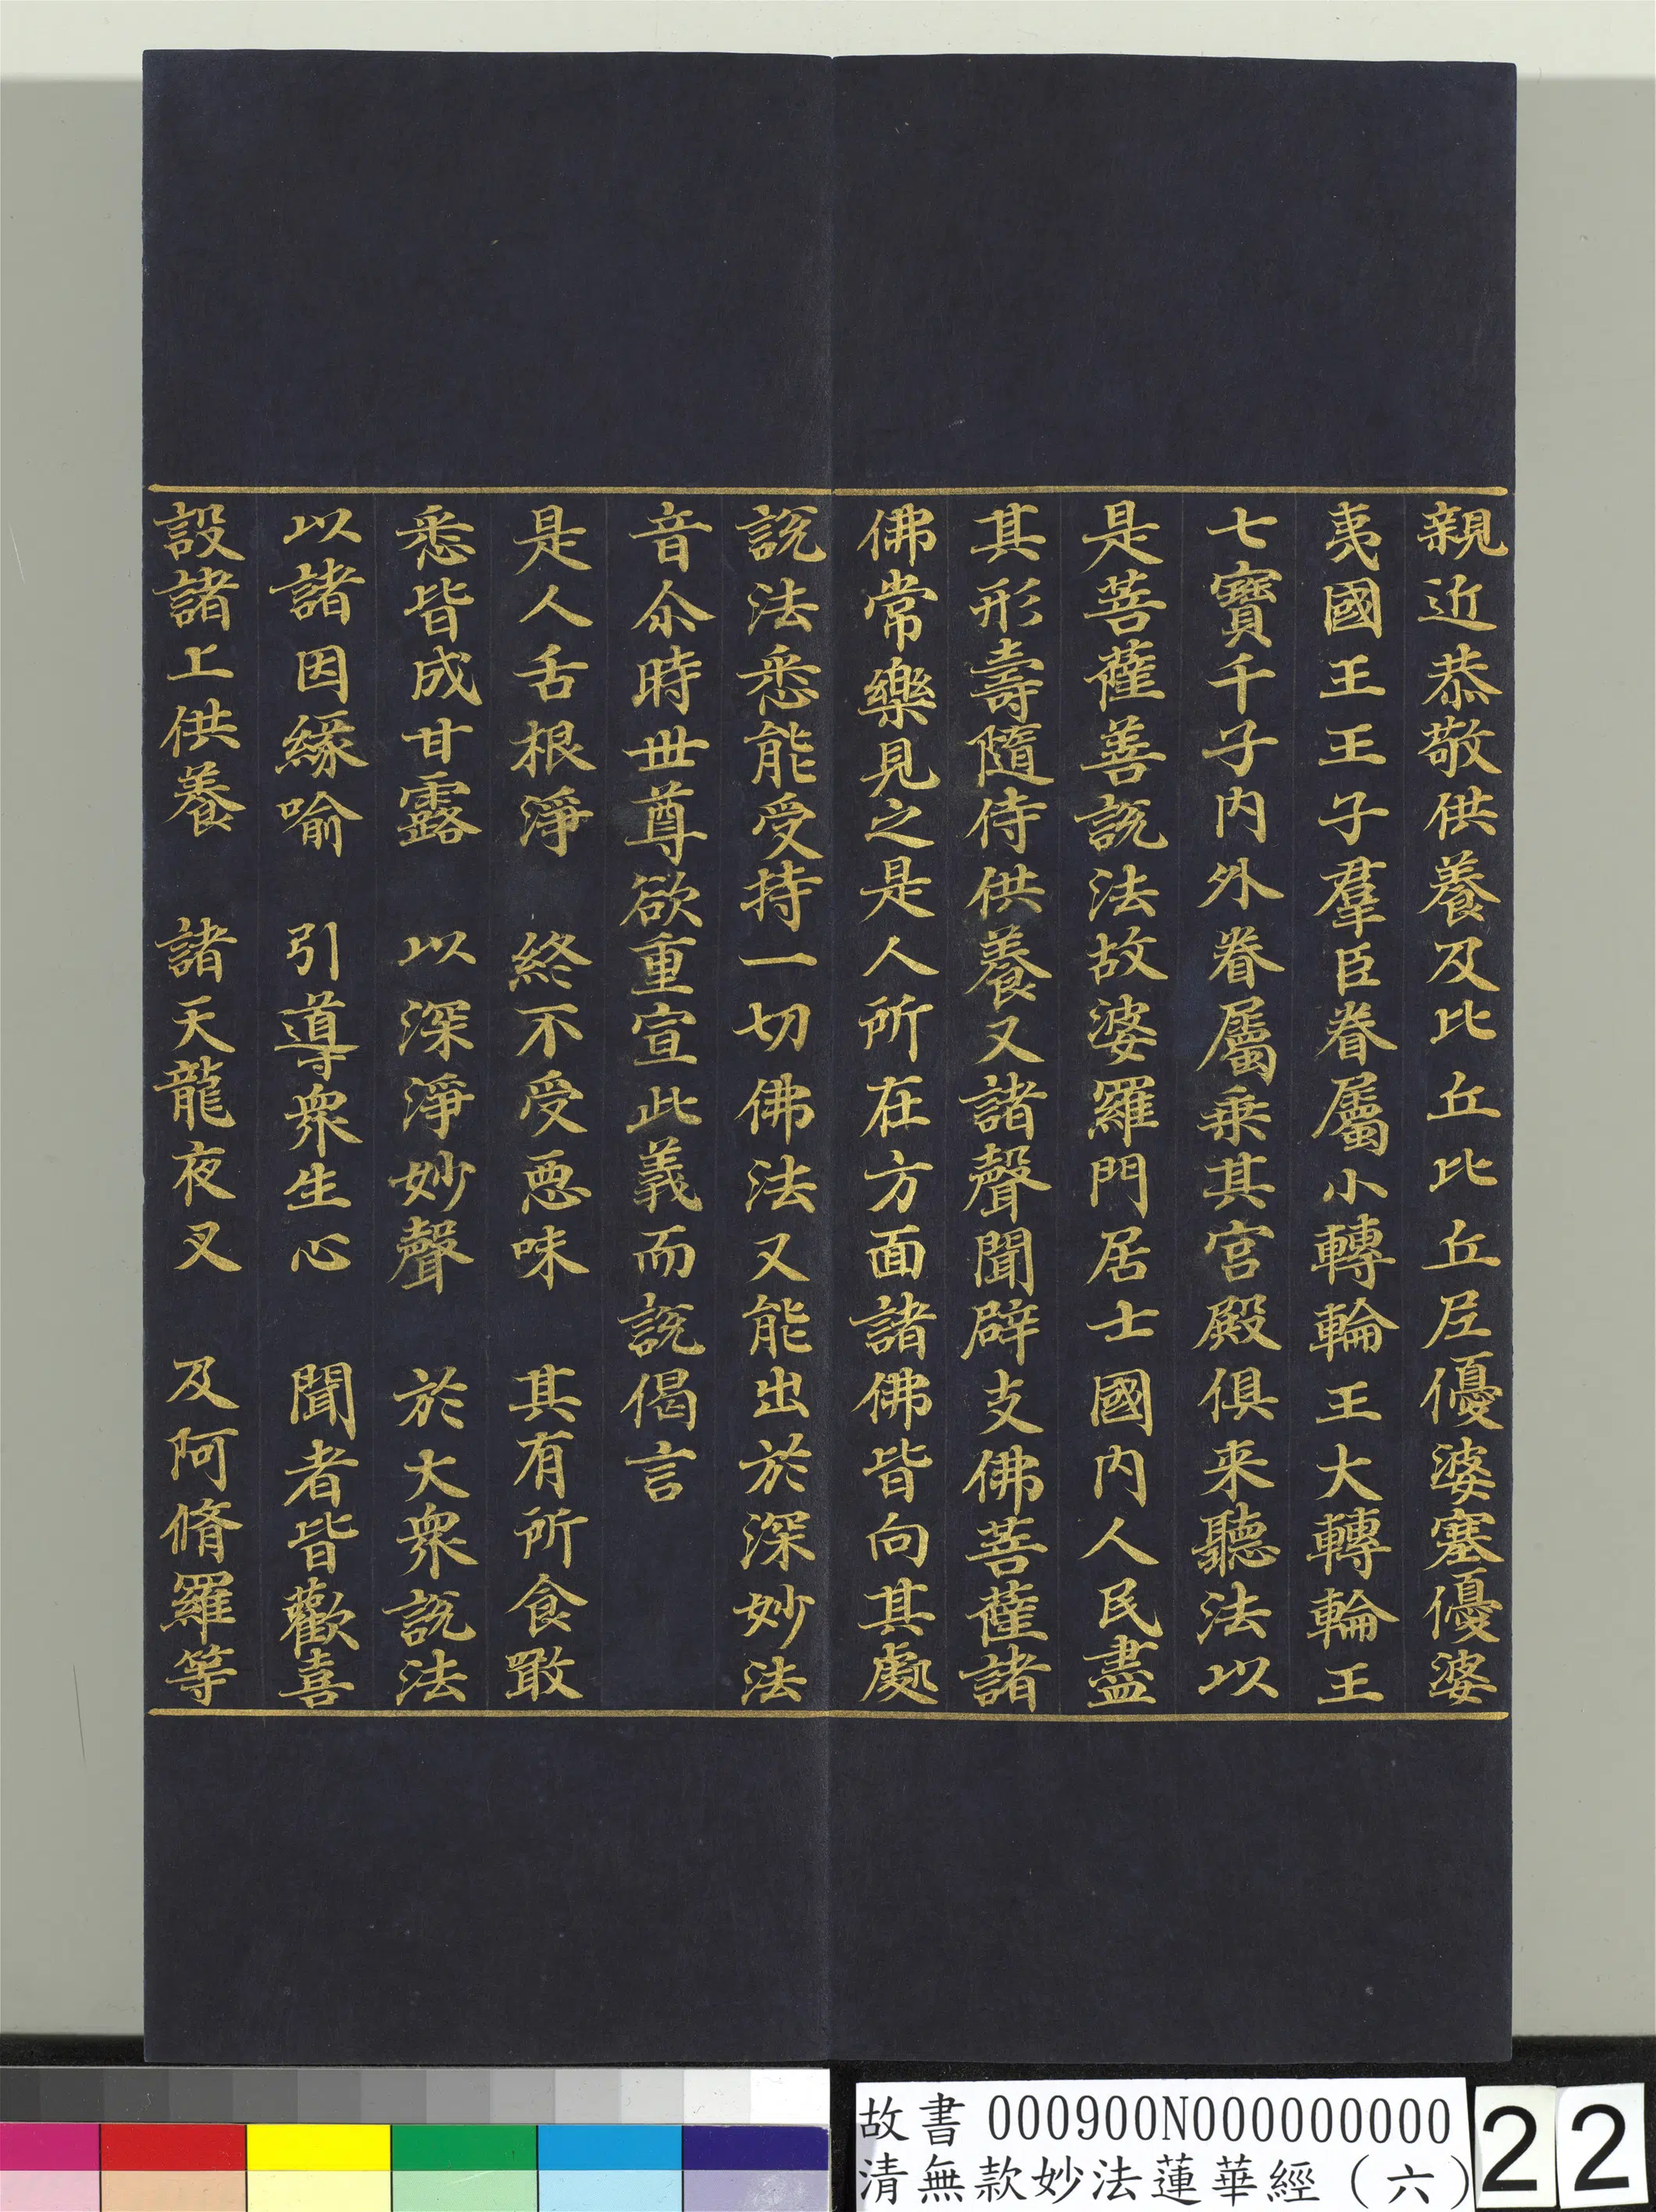 親近恭敬供養及比丘比丘尼優婆塞優婆
夷國王王子羣臣眷屬小轉輪王大轉輪王
七寶千子內外眷屬乗其宮殿俱来聽法以
是菩薩善說法故婆羅門居士國內人民盡
其形壽隨侍供養又諸聲聞辟支佛菩薩諸
佛常樂見之是人所在方面諸佛皆向其處
說法悉能受持一切佛法又能出於深妙法
音尒時世尊欲重宣此義而說偈言
是人舌根淨 終不受惡味 其有所食噉
悉皆成甘露 以深淨妙聲 於大衆說法
以諸因緣喻 引導衆生心 聞者皆歡喜
設諸上供養 諸天龍夜叉 及阿脩羅等
故書 000900N000000000
清無款妙法蓮華經(六)
22